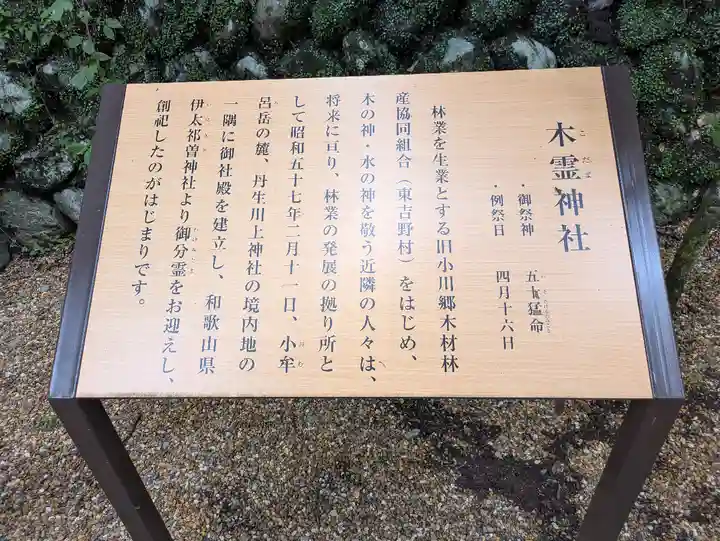 木霊神社
こだま
・御祭神 五十猛命
・例祭日 四月十六日
林業を生業とする旧小川郷木材林
産協同組合（東吉野村）をはじめ、
木の神・水の神を敬う近隣の人々は、
将来に亘り、林業の発展の拠り所と
して昭和五十七年二月十一日、小牟
呂岳の麓、丹生川上神社の境内地の
一隅に御社殿を建立し、和歌山県
伊太祁曽神社より御分霊をお迎えし、
創祀したのがはじまりです。